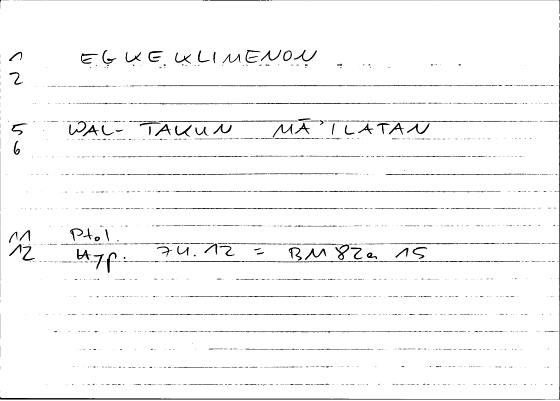 1 EGKEKLIMENON
2
5 WAL-TAKUN MĀʾILATAN
6
11 Ptol.
12 Hyp. 74.12 = BM 82a 15